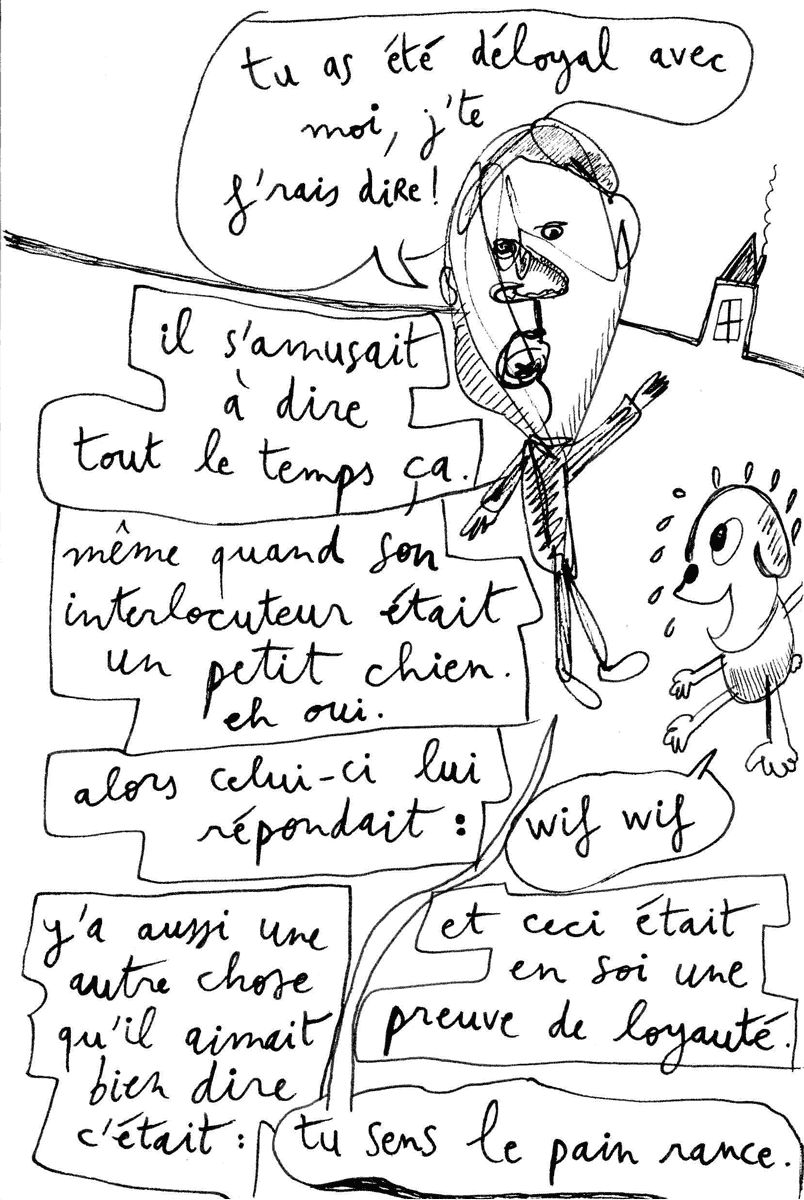 tu as été déloyal avec
moi, j'te
f'rais dire!
il s'amusait
à dire
tout le temps ça.
même quand son
interlocuteur était
un petit chien.
eh oui.
alors celui-ci lui
répondait :
wif wif
et ceci était
en soi une
preuve de loyauté.
y'a aussi une
autre chose
qu'il aimait
bien dire
c'était :
tu sens le pain rance.